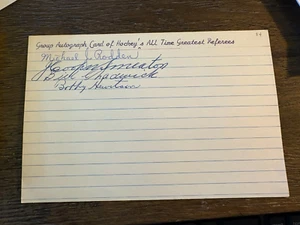 Group Autograph Card of Hockey's All Time Greatest Referees
Michael J. Rodden
J Cooper Smeaton
Bill Chadwick
Bobby Hewitson